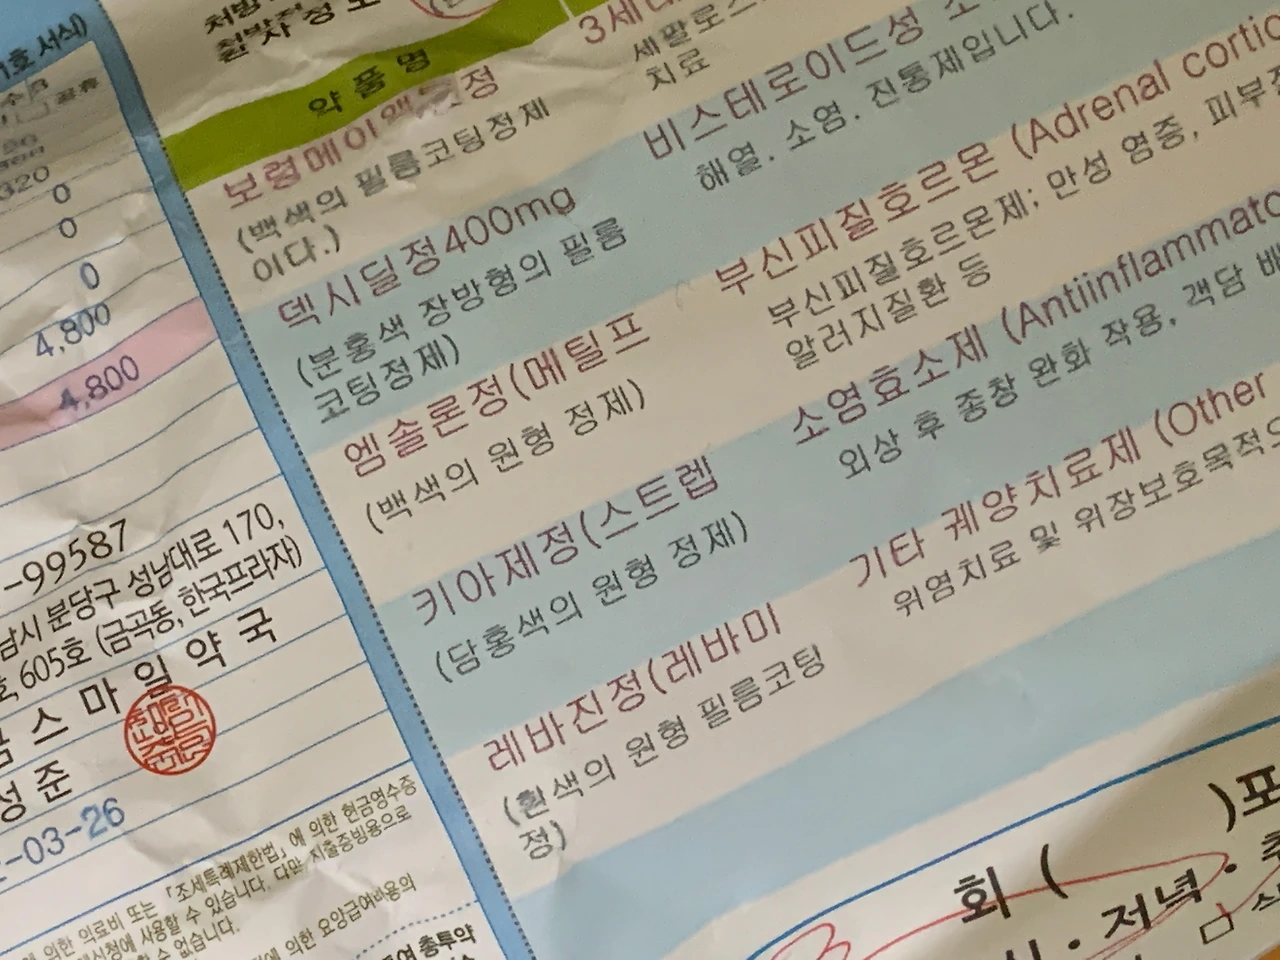 호 서식)
320
0
0
0
4,800
4,800
-99587
남시 분당구 성남대로 170,
605호 (금곡동, 한국프라자)
스 마 일 약 국
성 준
-03-26
「조세특례제한법」에 의한 현금영수증
의한 의료비 또는
사용할 수 있습니다. 다만, 지출증빙용으로
수 없습니다.
에 의한 요양급여비용의
총투약
약 품 명
보령메이액트정
(백색의 필름코팅정제
이다.)
3세대
세팔로스
치료
덱시딜정400mg
(분홍색 장방형의 필름
코팅정제)
비스테로이드성 소
해열. 소염. 진통제입니다.
엠솔론정(메틸프
(백색의 원형 정제)
부신피질호르몬 (Adrenal cortic
부신피질호르몬제; 만성 염증, 피부
알러지질환 등
키아제정(스트렙
(담홍색의 원형 정제)
소염효소제 (Antiinflammato
외상 후 종창 완화 작용, 객담 배
레바진정(레바미
(흰색의 원형 필름코팅
정)
기타 궤양치료제 (Other
위염치료 및 위장보호목적으
회 (
)포
· 저녁 ·